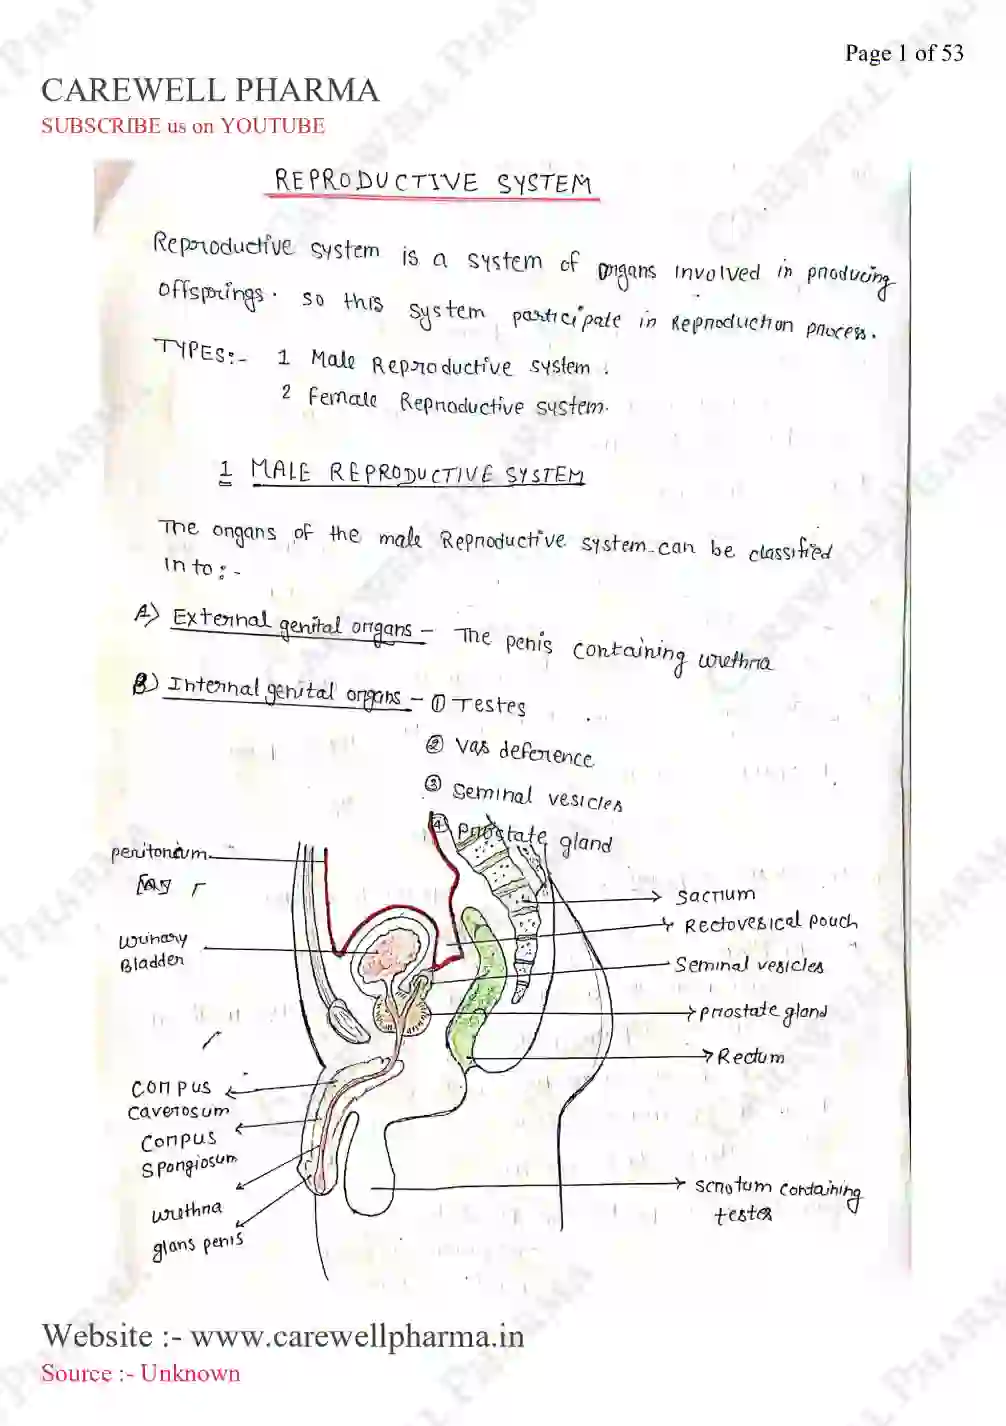 Page 1 of 53
CAREWELL PHARMA
SUBSCRIBE us on YOUTUBE
REPRODUCTIVE SYSTEM
Reproductive system is a system of organs involved in producing
offsprings. so this system participate in Reproduction process.
TYPES:- 1 Male Reproductive system.
2 Female Reproductive system.
1 MALE REPRODUCTIVE SYSTEM
The organs of the male Reproductive system can be classified
in to:-
A) External genital organs - The penis containing urethra
B) Internal genital organs - ① Testes
② Vas deference
③ Seminal vesicles
④ prostate gland
peritoneum
urinary
Bladder
corpus
caverosum
corpus
spongiosum
urethra
glans penis
sacrum
Rectovesical pouch
seminal vesicles
prostate gland
Rectum
scrotum containing
testes
Website :- www.carewellpharma.in
Source :- Unknown
CAREWELL PHARMA